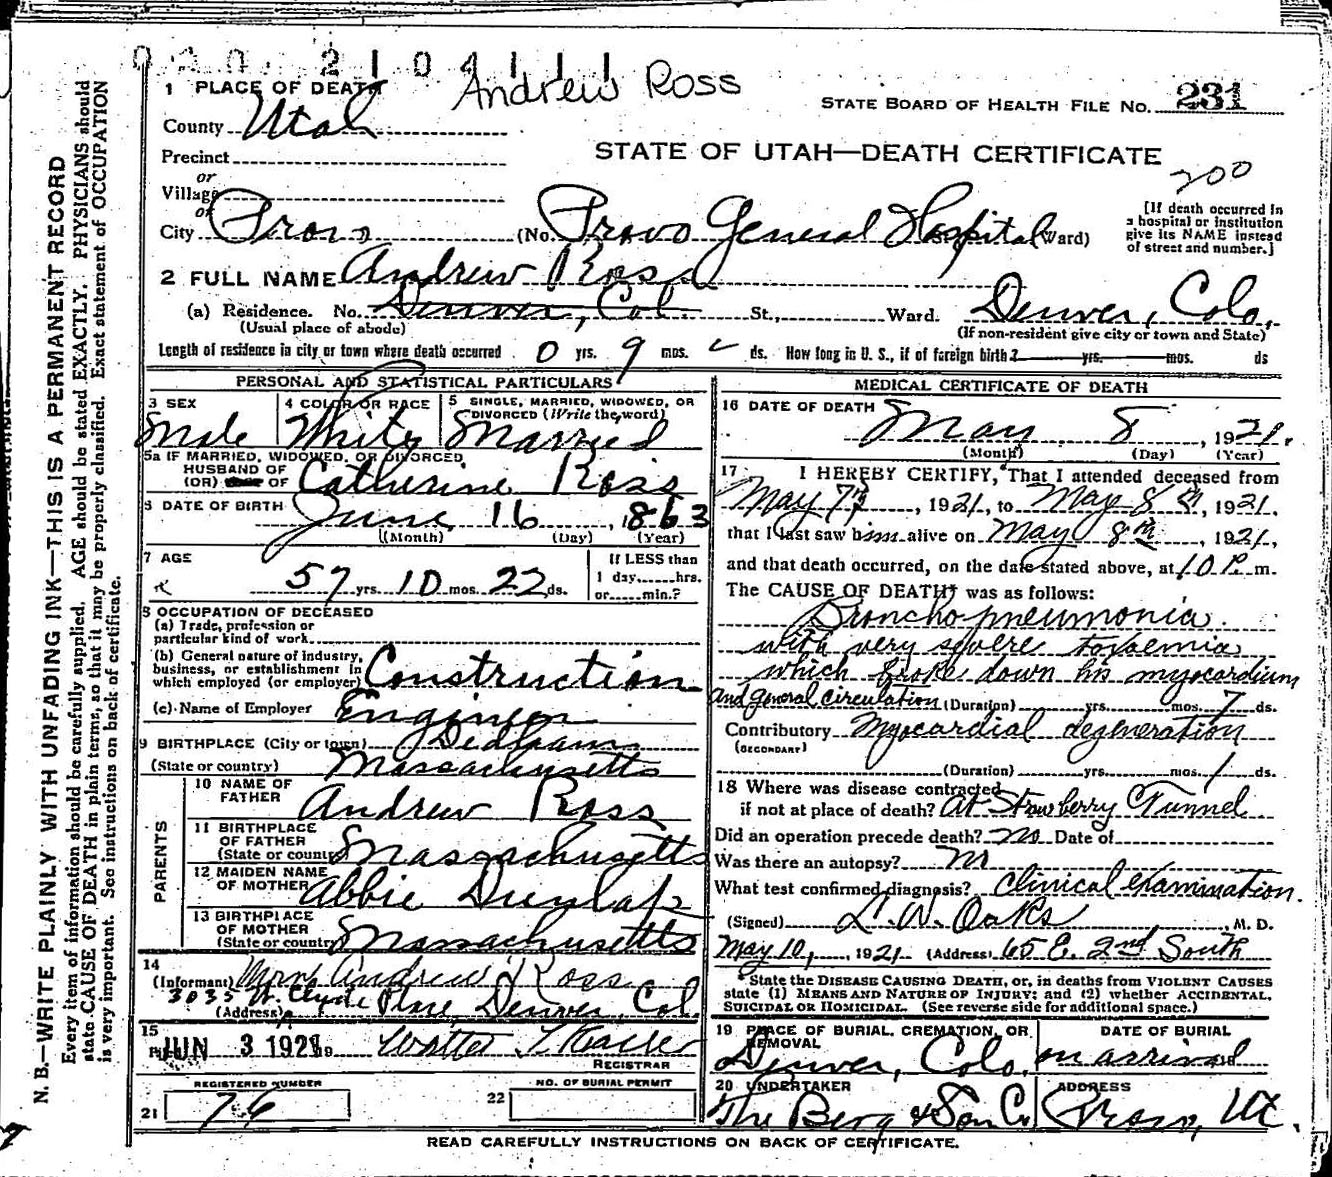 Andrew Ross
1 PLACE OF DEATH
STATE BOARD OF HEALTH FILE NO. 231
County Utah
STATE OF UTAH—DEATH CERTIFICATE
Precinct
200
or
Village
or
City Provo (No. Provo General Hospital Ward)
[If death occurred in
a hospital or institution
give its NAME instead
of street and number.]
2 FULL NAME Andrew Ross
(a) Residence. No. Denver, Col. St., Ward. Denver, Colo.
(Usual place of abode) (If non-resident give city or town and State)
Length of residence in city or town where death occurred 0 yrs. 9 mos. ds. How long in U. S., if of foreign birth? yrs. mos. ds
PERSONAL AND STATISTICAL PARTICULARS
3 SEX Male
4 COLOR OR RACE White
5 SINGLE, MARRIED, WIDOWED, OR
DIVORCED (Write the word)
Married
5a IF MARRIED, WIDOWED, OR DIVORCED
HUSBAND OF
(OR) OF Catherine Ross
6 DATE OF BIRTH June 16, 1863
(Month) (Day) (Year)
7 AGE 57 yrs. 10 mos. 22 ds.
If LESS than
1 day......hrs.
or......min.?
8 OCCUPATION OF DECEASED
(a) Trade, profession or
particular kind of work
(b) General nature of industry,
business, or establishment in
which employed (or employer) Construction
(c) Name of Employer Engineer
9 BIRTHPLACE (City or town) Dedham
(State or country) Massachusetts
PARENTS
10 NAME OF
FATHER Andrew Ross
11 BIRTHPLACE
OF FATHER
(State or country) Massachusetts
12 MAIDEN NAME
OF MOTHER Abbie Dunlap
13 BIRTHPLACE
OF MOTHER
(State or country) Massachusetts
14
(Informant) Mrs. Andrew Ross
3035 W. Clyde Place, Denver, Col.
(Address)
15
JUN 3 1921 Walter T.
REGISTRAR
REGISTERED NUMBER
21 76
NO. OF BURIAL PERMIT
22
MEDICAL CERTIFICATE OF DEATH
16 DATE OF DEATH
May 8, 1921.
(Month) (Day) (Year)
17 I HEREBY CERTIFY, That I attended deceased from
May 7th, 1921, to May 8th, 1921,
that I last saw him alive on May 8th, 1921,
and that death occurred, on the date stated above, at 10 P. m.
The CAUSE OF DEATH* was as follows:
Bronchopneumonia
with very severe toxaemia
which broke down his myocardium
and general circulation (Duration) yrs. mos. 7 ds.
Contributory Myocardial degeneration
(SECONDARY)
(Duration) yrs. mos. 1 ds.
18 Where was disease contracted
if not at place of death? At Strawberry Tunnel
Did an operation precede death? No Date of
Was there an autopsy? No
What test confirmed diagnosis? Clinical examination.
(Signed) L. W. Oaks, M. D.
May 10, 1921 (Address) 65 E. 2nd South
* State the DISEASE CAUSING DEATH, or, in deaths from VIOLENT CAUSES
state (1) MEANS AND NATURE OF INJURY; and (2) whether ACCIDENTAL,
SUICIDAL OR HOMICIDAL. (See reverse side for additional space.)
19 PLACE OF BURIAL, CREMATION, OR
REMOVAL
Denver, Colo.
DATE OF BURIAL
on arrival
20 UNDERTAKER
The Berg & Son Co
ADDRESS
Provo, Ut.
READ CAREFULLY INSTRUCTIONS ON BACK OF CERTIFICATE.
N. B.—WRITE PLAINLY WITH UNFADING INK—THIS IS A PERMANENT RECORD
Every item of information should be carefully supplied. AGE should be stated EXACTLY. PHYSICIANS should
state CAUSE OF DEATH in plain terms, so that it may be properly classified. Exact statement of OCCUPATION
is very important. See instructions on back of certificate.